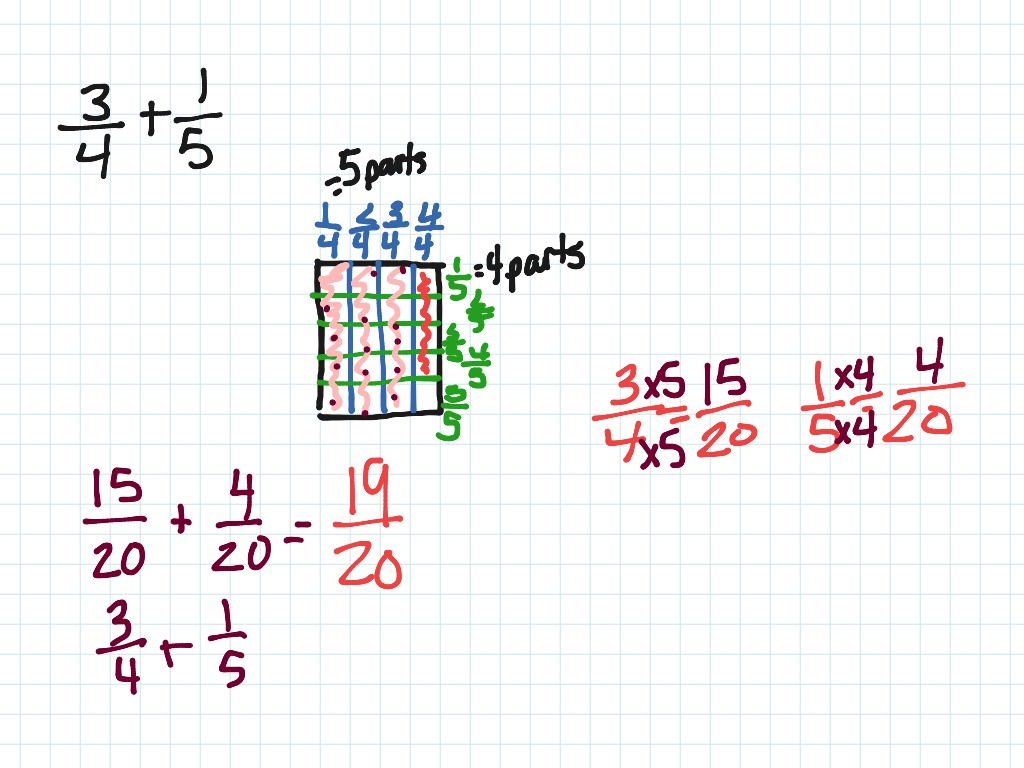 3/4 + 1/5
= 5 parts
1/4 2/4 3/4 4/4
1/5 = 4 parts
4/5
5/5
3/4 x5/x5 = 15/20
1/5 x4/x4 = 4/20
15/20 + 4/20 = 19/20
3/4 + 1/5